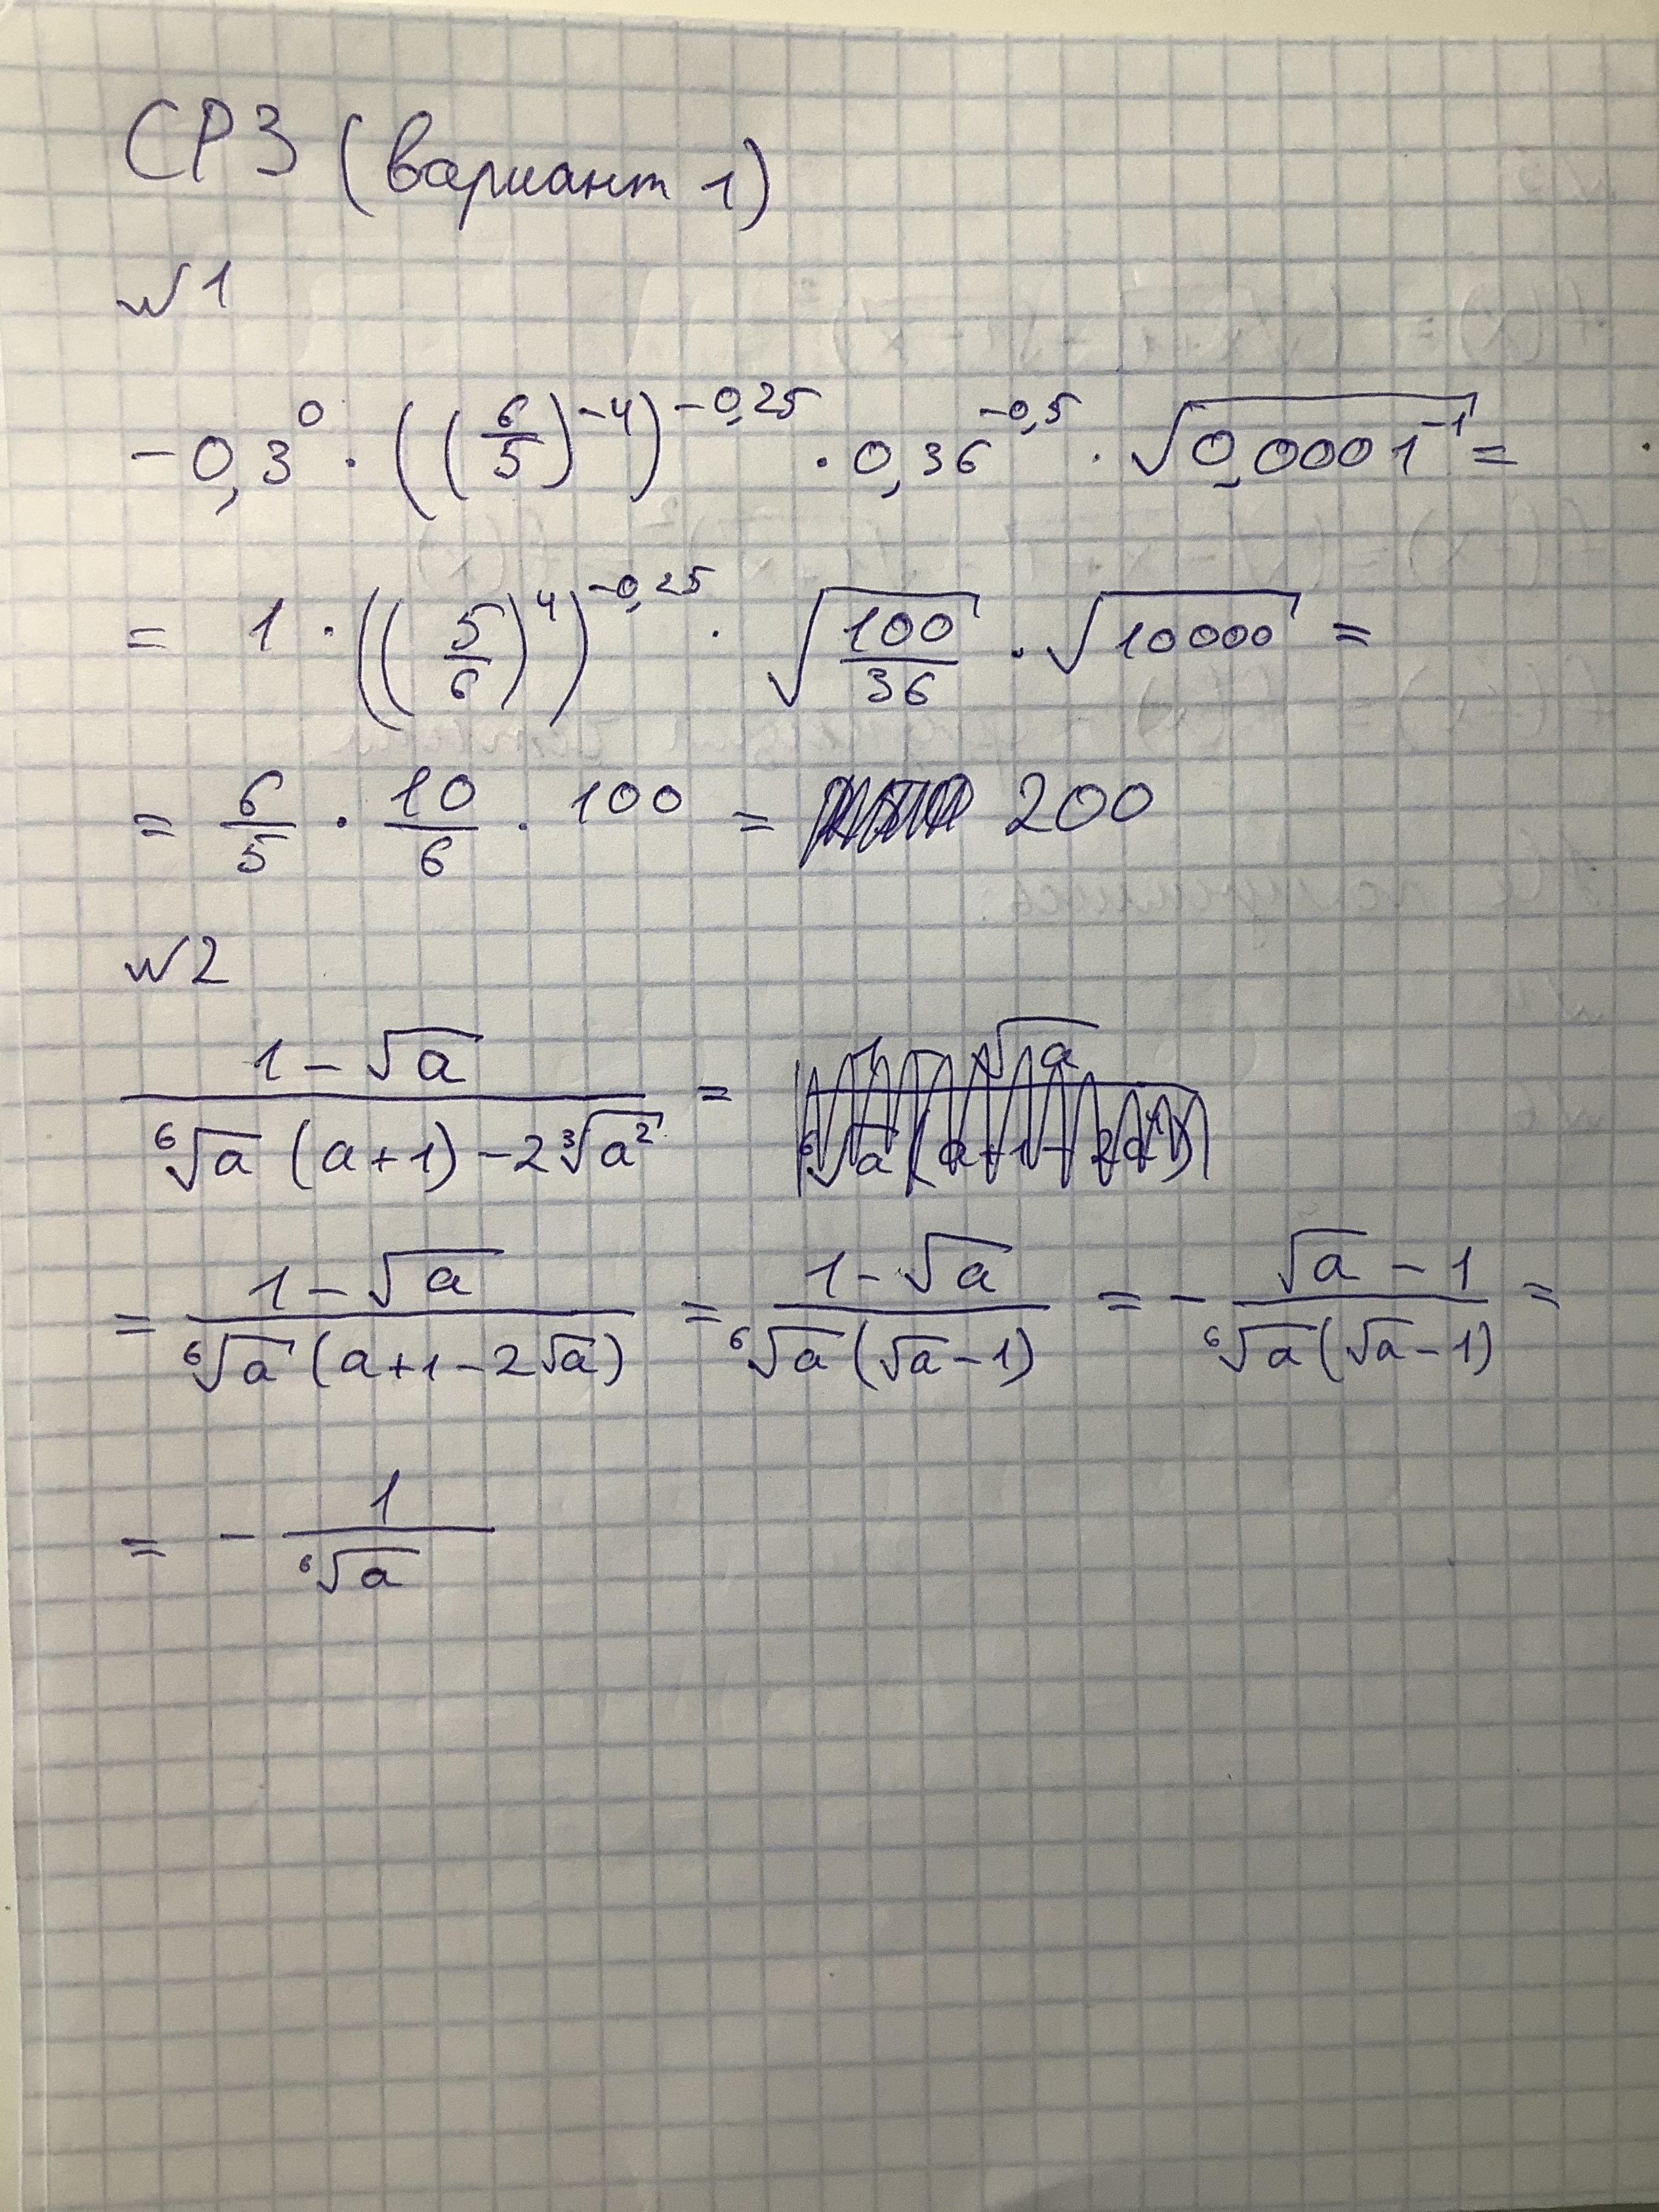 СР3 (вариант 1)
№1
-0,3^0 · ((6/5)^-4)^-0,25 · 0,36^-0,5 · √(0,0001^-1) =
= 1 · ((5/6)^4)^-0,25 · √(100/36) · √10000 =
= 6/5 · 10/6 · 100 = 200
№2
(1-√a)/(⁶√a (a+1) - 2³√a²) =
= (1-√a)/(⁶√a (a+1-2√a)) = (1-√a)/(⁶√a (√a-1)) = - (√a-1)/(⁶√a (√a-1)) =
= - 1/⁶√a